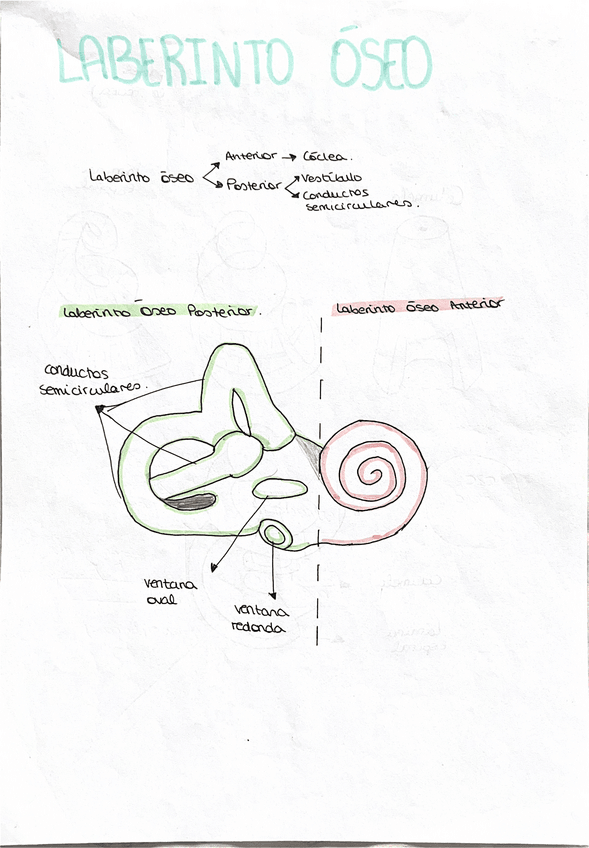 LABERINTO ÓSEO
Laberinto óseo
Anterior → Cóclea.
Posterior
Vestíbulo
Conductos
semicirculares.
Laberinto Óseo Posterior.
Laberinto óseo Anterior
conductos
semicirculares.
ventana
oval
ventana
redonda